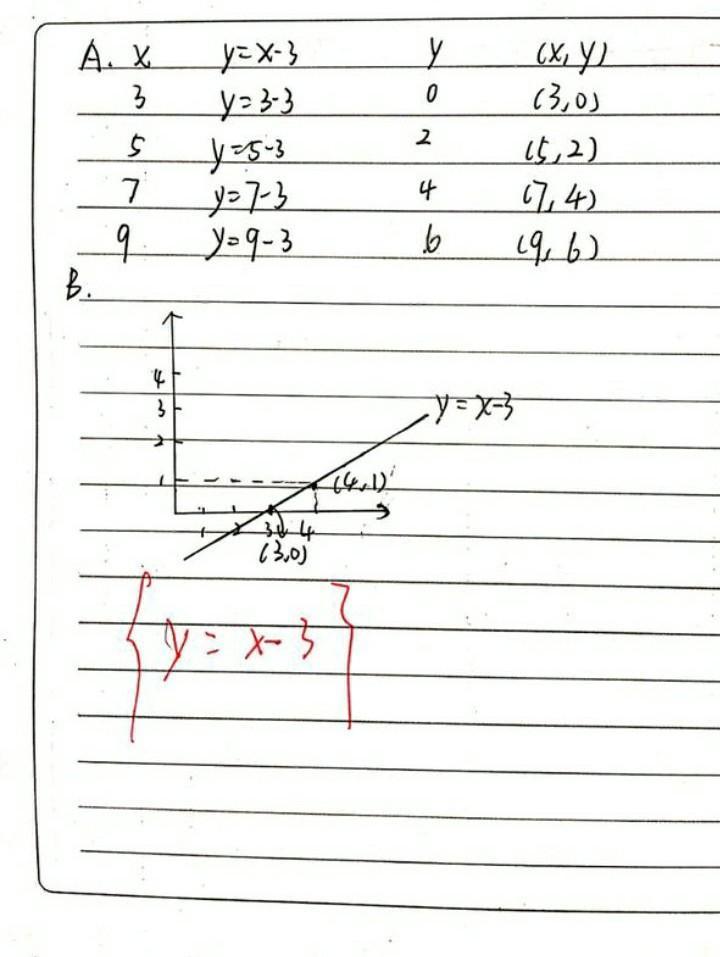 A. x y=x-3 y (x, y)
3 y=3-3 0 (3,0)
5 y=5-3 2 (5,2)
7 y=7-3 4 (7,4)
9 y=9-3 6 (9,6)
B.
4
3
y=x-3
2
1 (4,1)
1 2 3 4
(3,0)
y = x-3